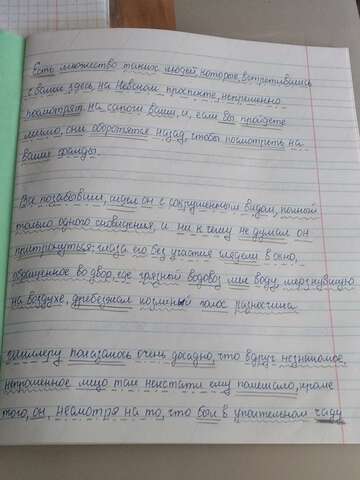 Есть множество таких людей, которые, встретившись
с вами здесь, на Невском проспекте, непременно
посмотрят на сапоги ваши, и, если вы пройдете
мимо, они оборотятся назад, чтобы посмотреть на
ваши фалды.
Все позабывши, сидел он с сокрушенным видом, полный
только одного сновидения, и ни к чему не думал он
притронуться: глаза его без участия глядели в окно,
обращенное во двор, где грязный водовоз лил воду, мерзнувшую
на воздухе, дребезжал козлиный голос разносчика
Шиллеру показалось очень досадно, что вдруг незнакомое,
непрошенное лицо так некстати ему помешало, кроме
того, он, несмотря на то, что был в упоительном чаду